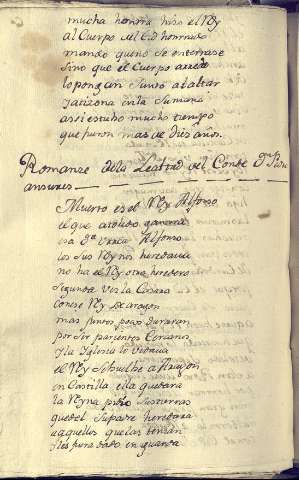 mucha honrra hizo el Rey
al Cuerpo del Cid honrrado
mando que no se enterrase
sino que el Cuerpo
lo pongan Junto al altar
ytatizona en la su mano
assi estubo mucho tiempo
que fueron mas de diez años.
Romanze de la Lealtad del Conde Dn Peran
ansures
Muerto es el Rey Alfonso
el que a toledo ganara
esa Da Vrraca Alfonso
los sus Reynos heredaua
no ha el Rey otro heredero
segunda vez la Casara
con ese Rey de aragon
mas juntos poco duraron
por ser parientes Cercanos
y la Iglesia lo vedaua
el Rey se buelbe a Aragon
en Castilla ella quedara
la Reyna pidio sus tierras
que del su padre heredara
a aquellos que las tenian